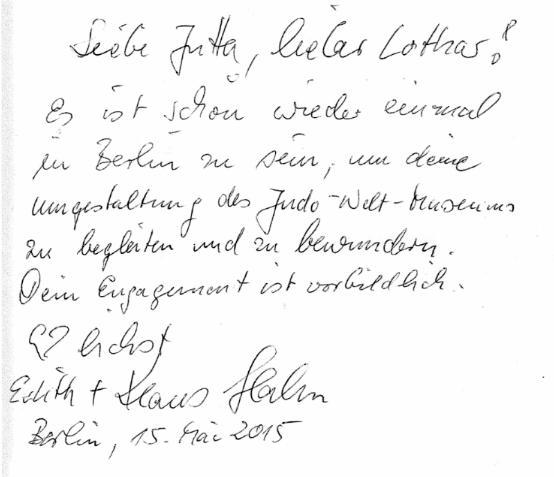 Liebe Jutta, lieber Lothar!
Es ist schön wieder einmal
in Berlin zu sein, um deine
Umgestaltung des Judo-Welt-Museums
zu begleiten und zu bewundern.
Dein Engagement ist vorbildlich.
Edith + Klaus Hahn
Berlin, 15. Mai 2015